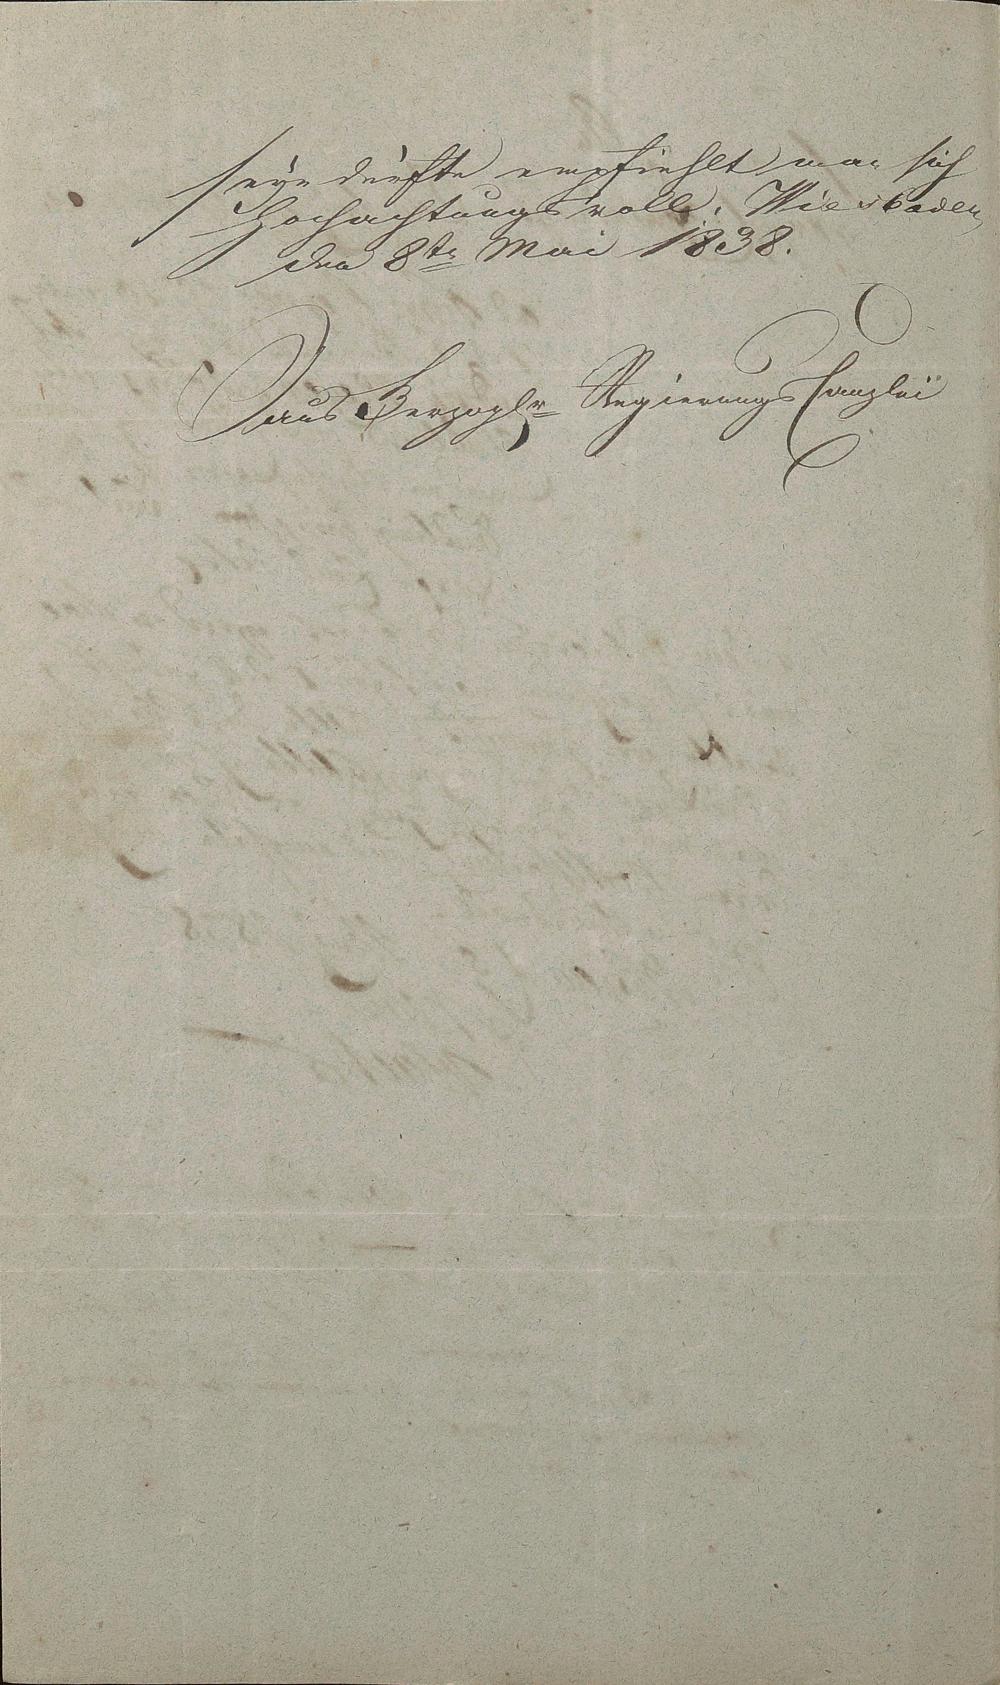 seyn dürfte empfiehlt man sich
Hochachtungsvoll. Wiesbaden,
den 8ten Mai 1838.
Aus Herzoglr Regierungs Canzlei